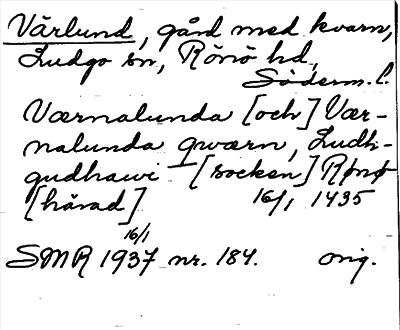 Värlund, gård med kvarn,
Ludgo sn, Rönö hd,
Söderm. l.
Værnalunda [och] Vær-
nalunda qwærn, Ludh-
gudhawi [socken] Rønø
[härad] 16/1 1435
16/1
SMR 1937 nr. 184. orig.